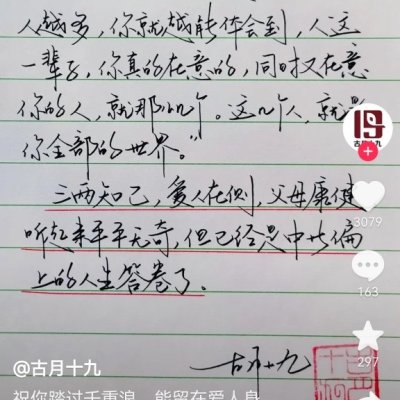 人越多，你就越能体会到，人这
一辈子，你真的在意的，同时又在意
你的人，就那几个。这几个人，就是
你全部的世界。”
三两知己，爱人在侧，父母康健
听起来平平无奇，但已经是中等偏
上的人生答卷了。
古月十九
古月十九
3079
163
297
@古月十九
祝你踏过千重浪，能留在爱人身